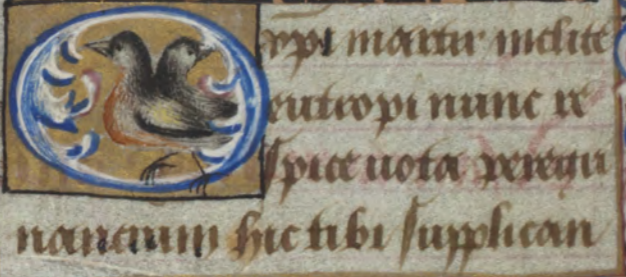 O xpi martir inclite
eutropi nunc re
spice uota peregri
nancium hic tibi supplican